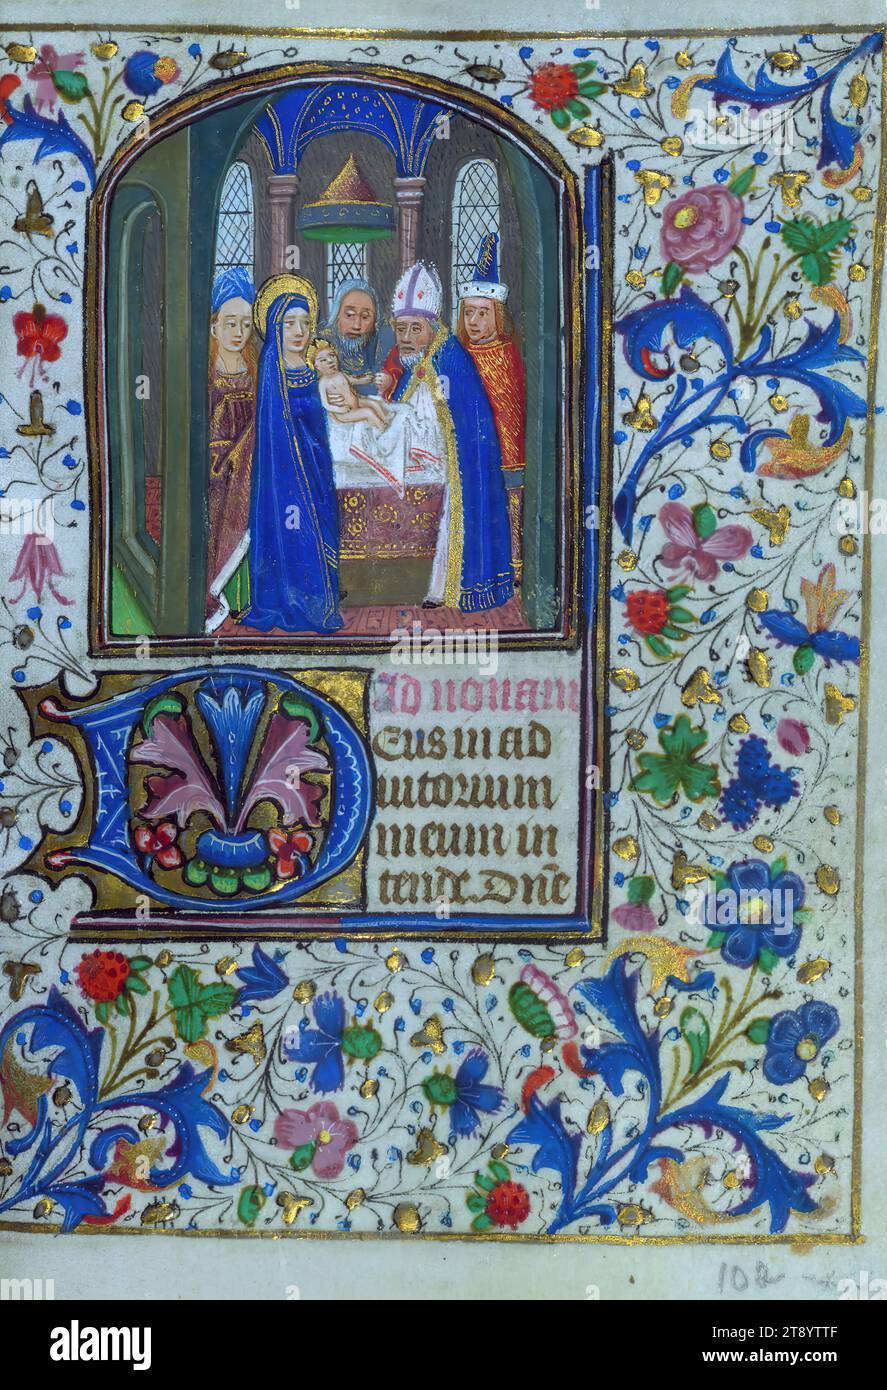 Ad nonam
Deus in ad
iutorium
meum in
tende. Dn̄e
102
alamy
Image ID: 2T8YTTF
www.alamy.com